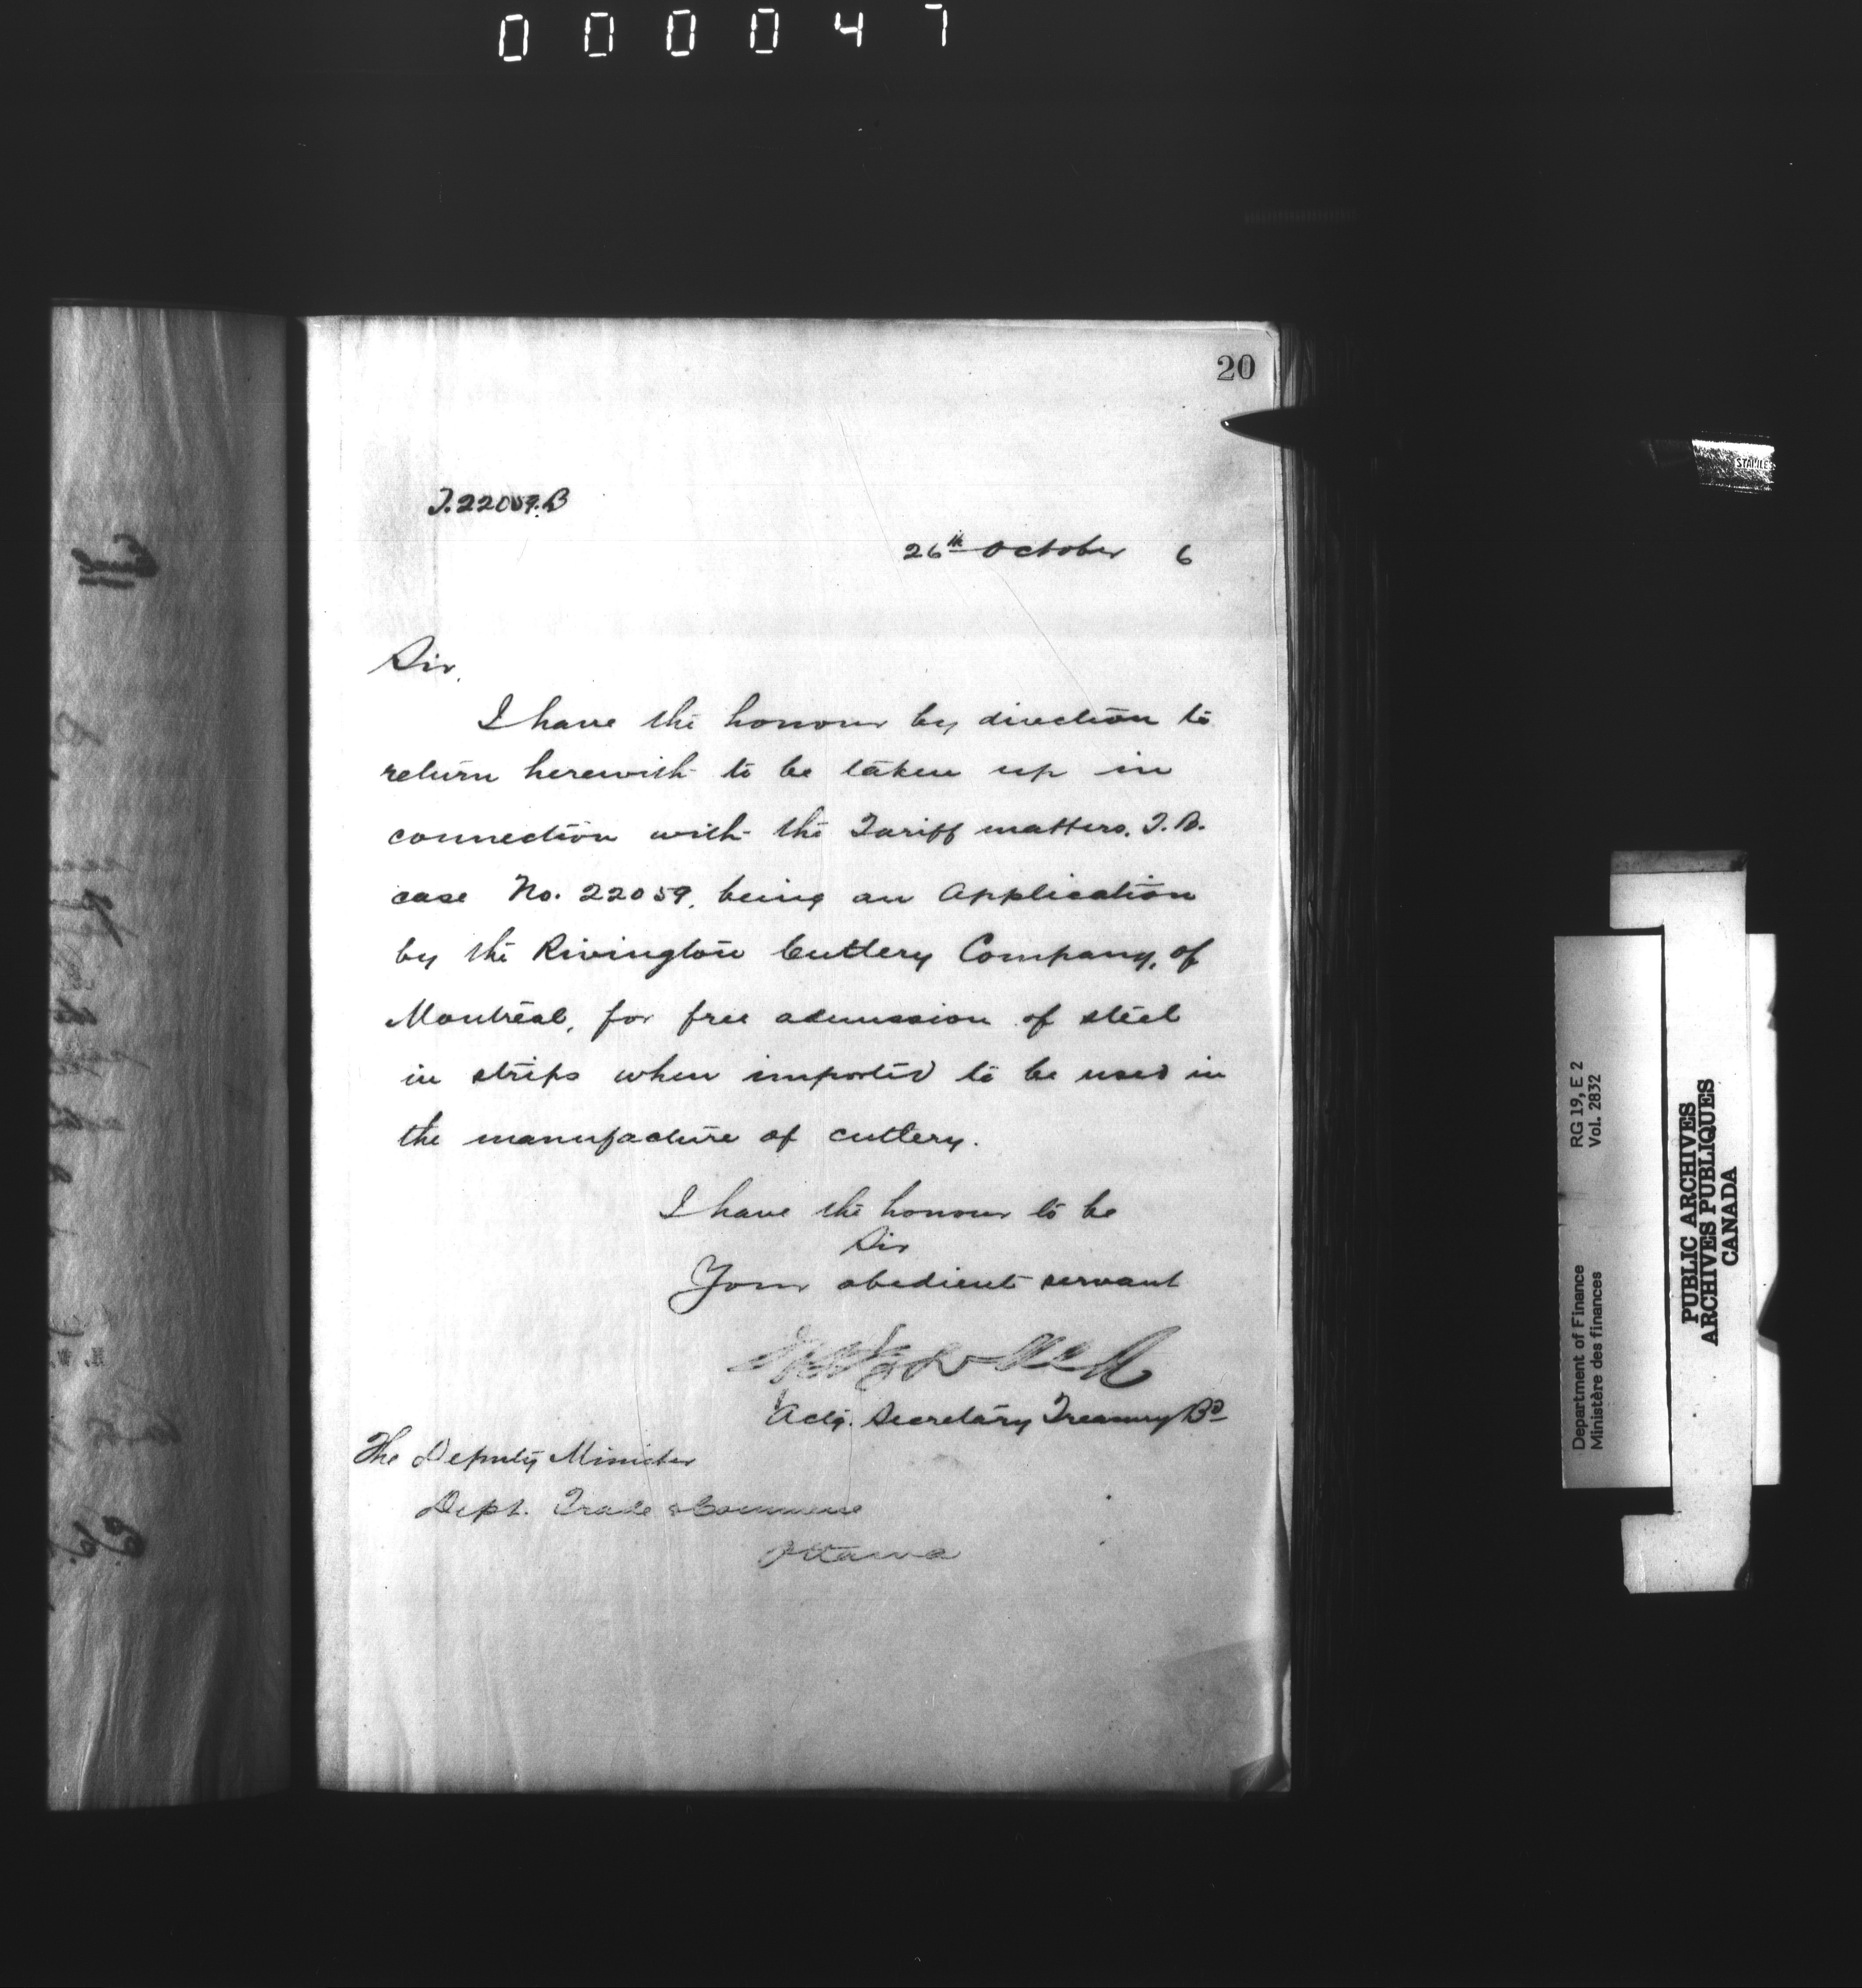 000047
20
T.22059.B
26th October 6
Sir,
I have the honour by direction to
return herewith to be taken up in
connection with the Tariff matters. T.B.
case No. 22059, being an Application
by the Rivington Cutlery Company, of
Montreal, for free admission of steel
in strips when imported to be used in
the manufacture of cutlery.
I have the honour to be
Sir
Your obedient servant
Actg. Secretary Treasury Bd
The Deputy Minister
Dept. Trade & Commerce
Ottawa
STANLE
Department of Finance RG 19, E 2
Ministère des finances Vol. 2832
PUBLIC ARCHIVES
ARCHIVES PUBLIQUES
CANADA